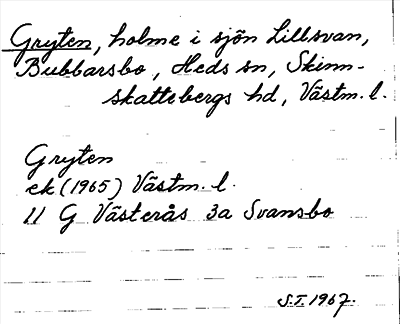 Gryten, holme i sjön Lillsvan,
Bubbarsbo, Heds sn, Skinn-
skattebergs hd, Västm. l.
Gryten
ek (1965) Västm. l.
11 G Västerås 3a Svansbo
S.T. 1967.